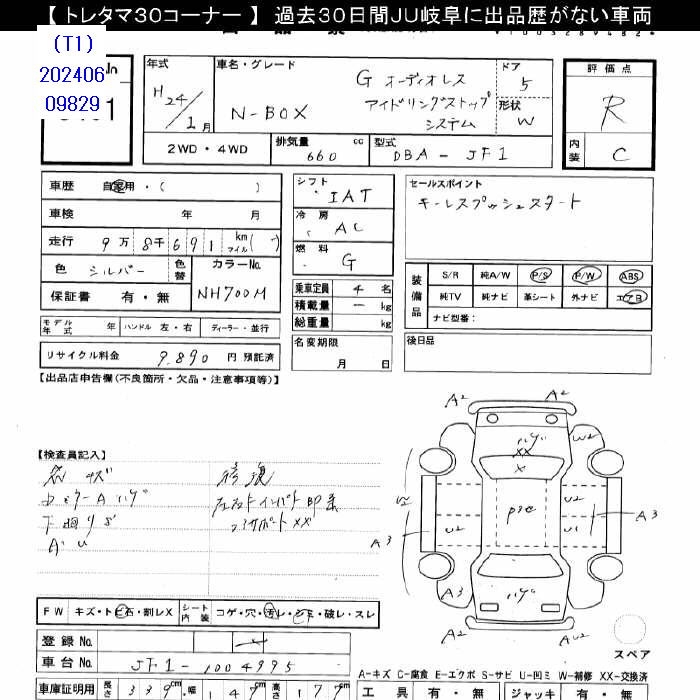 【トレタマ30コーナー】 過去30日間JU岐阜に出品歴がない車両
(T1)
202406
09829
年式
H24/1月
車名・グレード
N-BOX
G オーディオレス
アイドリングストップ
システム
ドア
5
形状
W
評価点
R
内装
C
2WD・4WD
排気量 660 cc
型式 DBA-JF1
車歴 自家用・( )
車検 年 月
走行 9万8千691 km マイル
色 シルバー
色替
カラーNo. NH700M
保証書 有・無
モデル年式 年 ハンドル 左・右 ディーラー・並行
リサイクル料金 9.890 円 預託済
シフト
IAT
冷房
AC
燃料
G
乗車定員 4 名
積載量 ー kg
総重量 kg
名変期限
月 日
セールスポイント
キーレスプッシュスタート
装備品
S/R 純A/W P/S P/W ABS
純TV 純ナビ 革シート 外ナビ エアB
ナビ型番:
後日品
【出品店申告欄(不良箇所・欠品・注意事項等)】
【検査員記入】
修復
下廻りS
A2 A2
W2
XX
X
U2
U2 U1
A3 A3
A3
A2 A2
スペア
FW キズ・トビ石・割レX
シート内装 コゲ・穴・汚レ・シミ・破レ・スレ
登録No.
車台No. JF1-1004995
A-キズ C-腐食 E-エクボ S-サビ U-凹ミ W-補修 XX-交換済
車庫証明用 長さ 339cm 幅 147cm 高さ 177
工具 有・無 ジャッキ 有・無